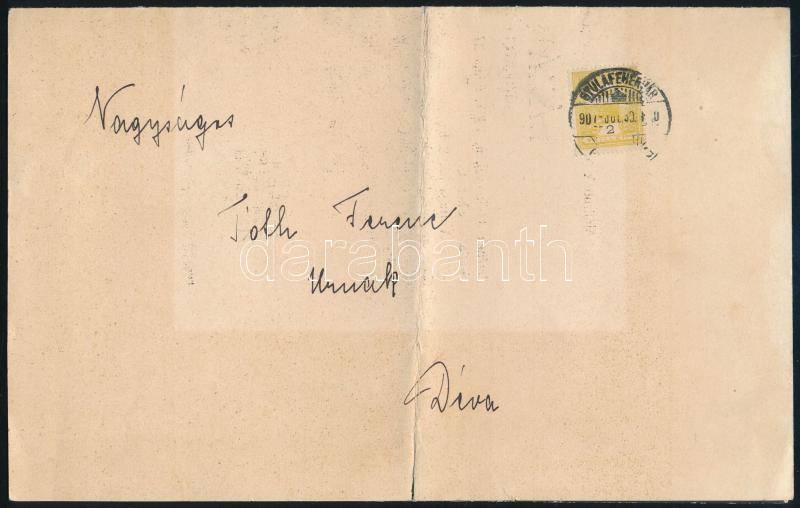 GYULAFEHÉRVÁR
907
2
Nagyságos
Tóth Ferenc
Urnak
darabanth
Déva